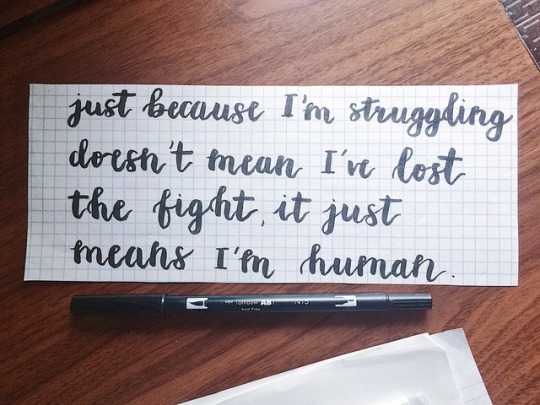 just because I'm struggling
doesn't mean I've lost
the fight, it just
means I'm human.
Tombow AB N15